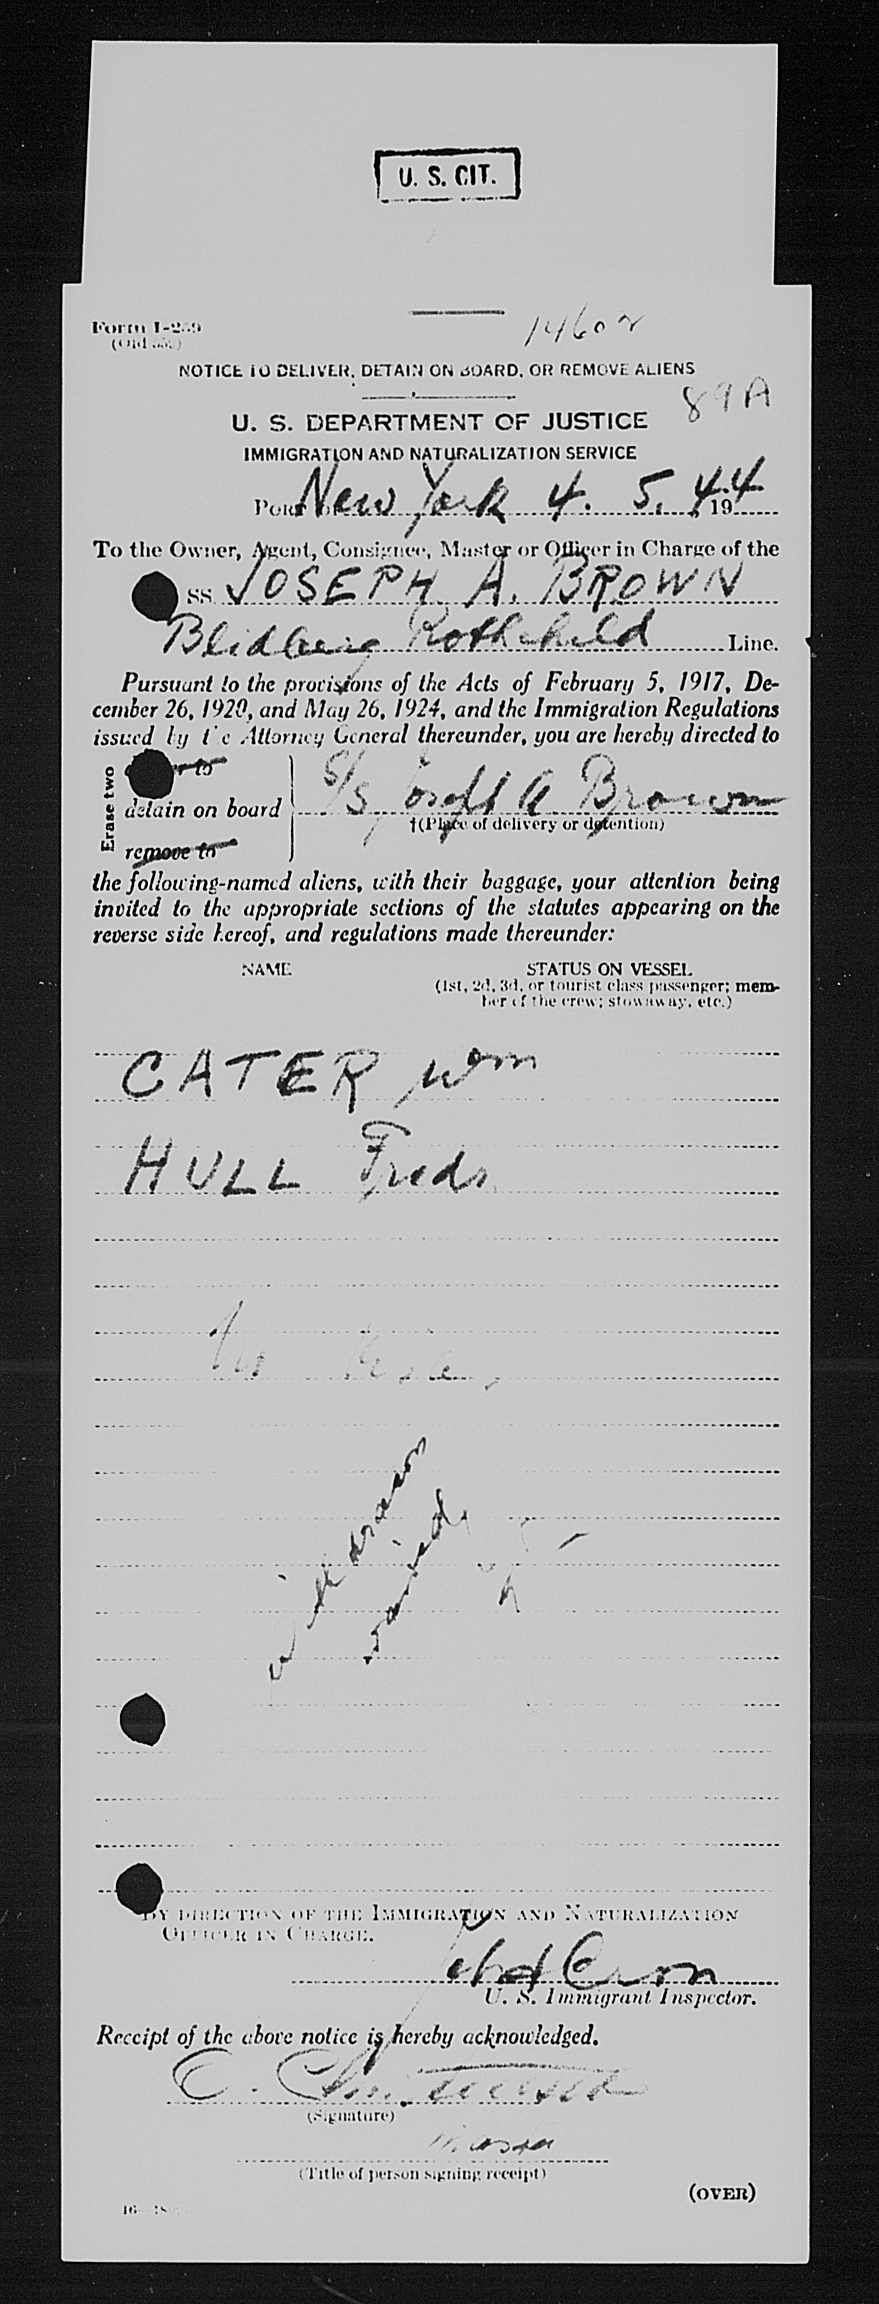 U. S. CIT.
Form I-259
14602
NOTICE TO DELIVER, DETAIN ON BOARD, OR REMOVE ALIENS
89A
U. S. DEPARTMENT OF JUSTICE
IMMIGRATION AND NATURALIZATION SERVICE
PORT OF New York 4. 5. 1944
To the Owner, Agent, Consignee, Master or Officer in Charge of the
SS. JOSEPH A. BROWN
Blidberg Rothchild Line.
Pursuant to the provisions of the Acts of February 5, 1917, De-
cember 26, 1920, and May 26, 1924, and the Immigration Regulations
issued by the Attorney General thereunder, you are hereby directed to
Erase two
to
detain on board
remove to
S/S Joseph A Brown
†(Place of delivery or detention)
the following-named aliens, with their baggage, your attention being
invited to the appropriate sections of the statutes appearing on the
reverse side hereof, and regulations made thereunder:
NAME STATUS ON VESSEL
(1st, 2d, 3d, or tourist class passenger; mem-
ber of the crew; stowaway, etc.)
CATER Wm
HULL Fredr
withdrawn
waived
BY DIRECTION OF THE IMMIGRATION AND NATURALIZATION
OFFICER IN CHARGE.
U. S. Immigrant Inspector.
Receipt of the above notice is hereby acknowledged.
(Signature)
Master
(Title of person signing receipt)
(OVER)